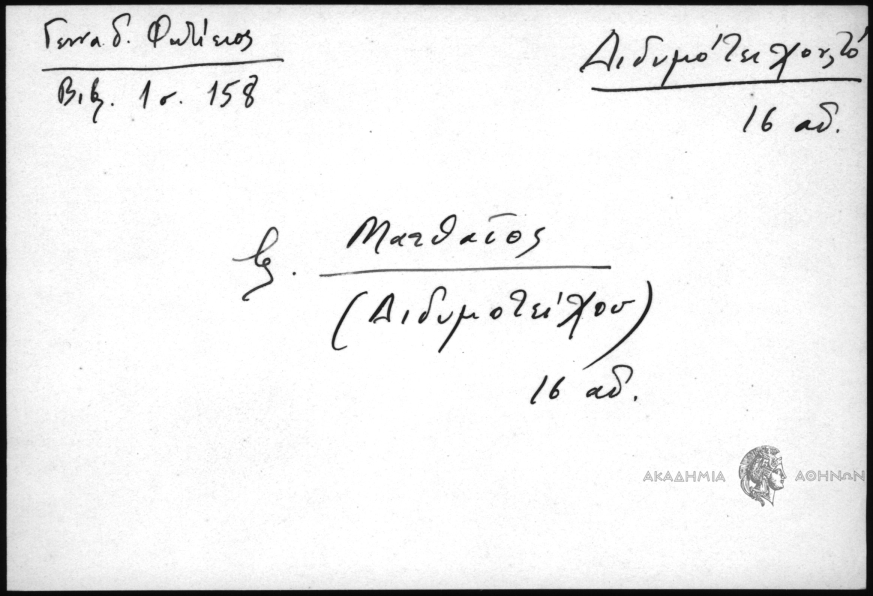 Γενναδ. Φωτίειος
Βιβ. 1 σ. 158
Διδυμότειχον, τό
16 αδ.
β. Ματθαῖος
(Διδυμοτείχου)
16 αδ.
ΑΚΑΔΗΜΙΑ ΑΘΗΝΩΝ